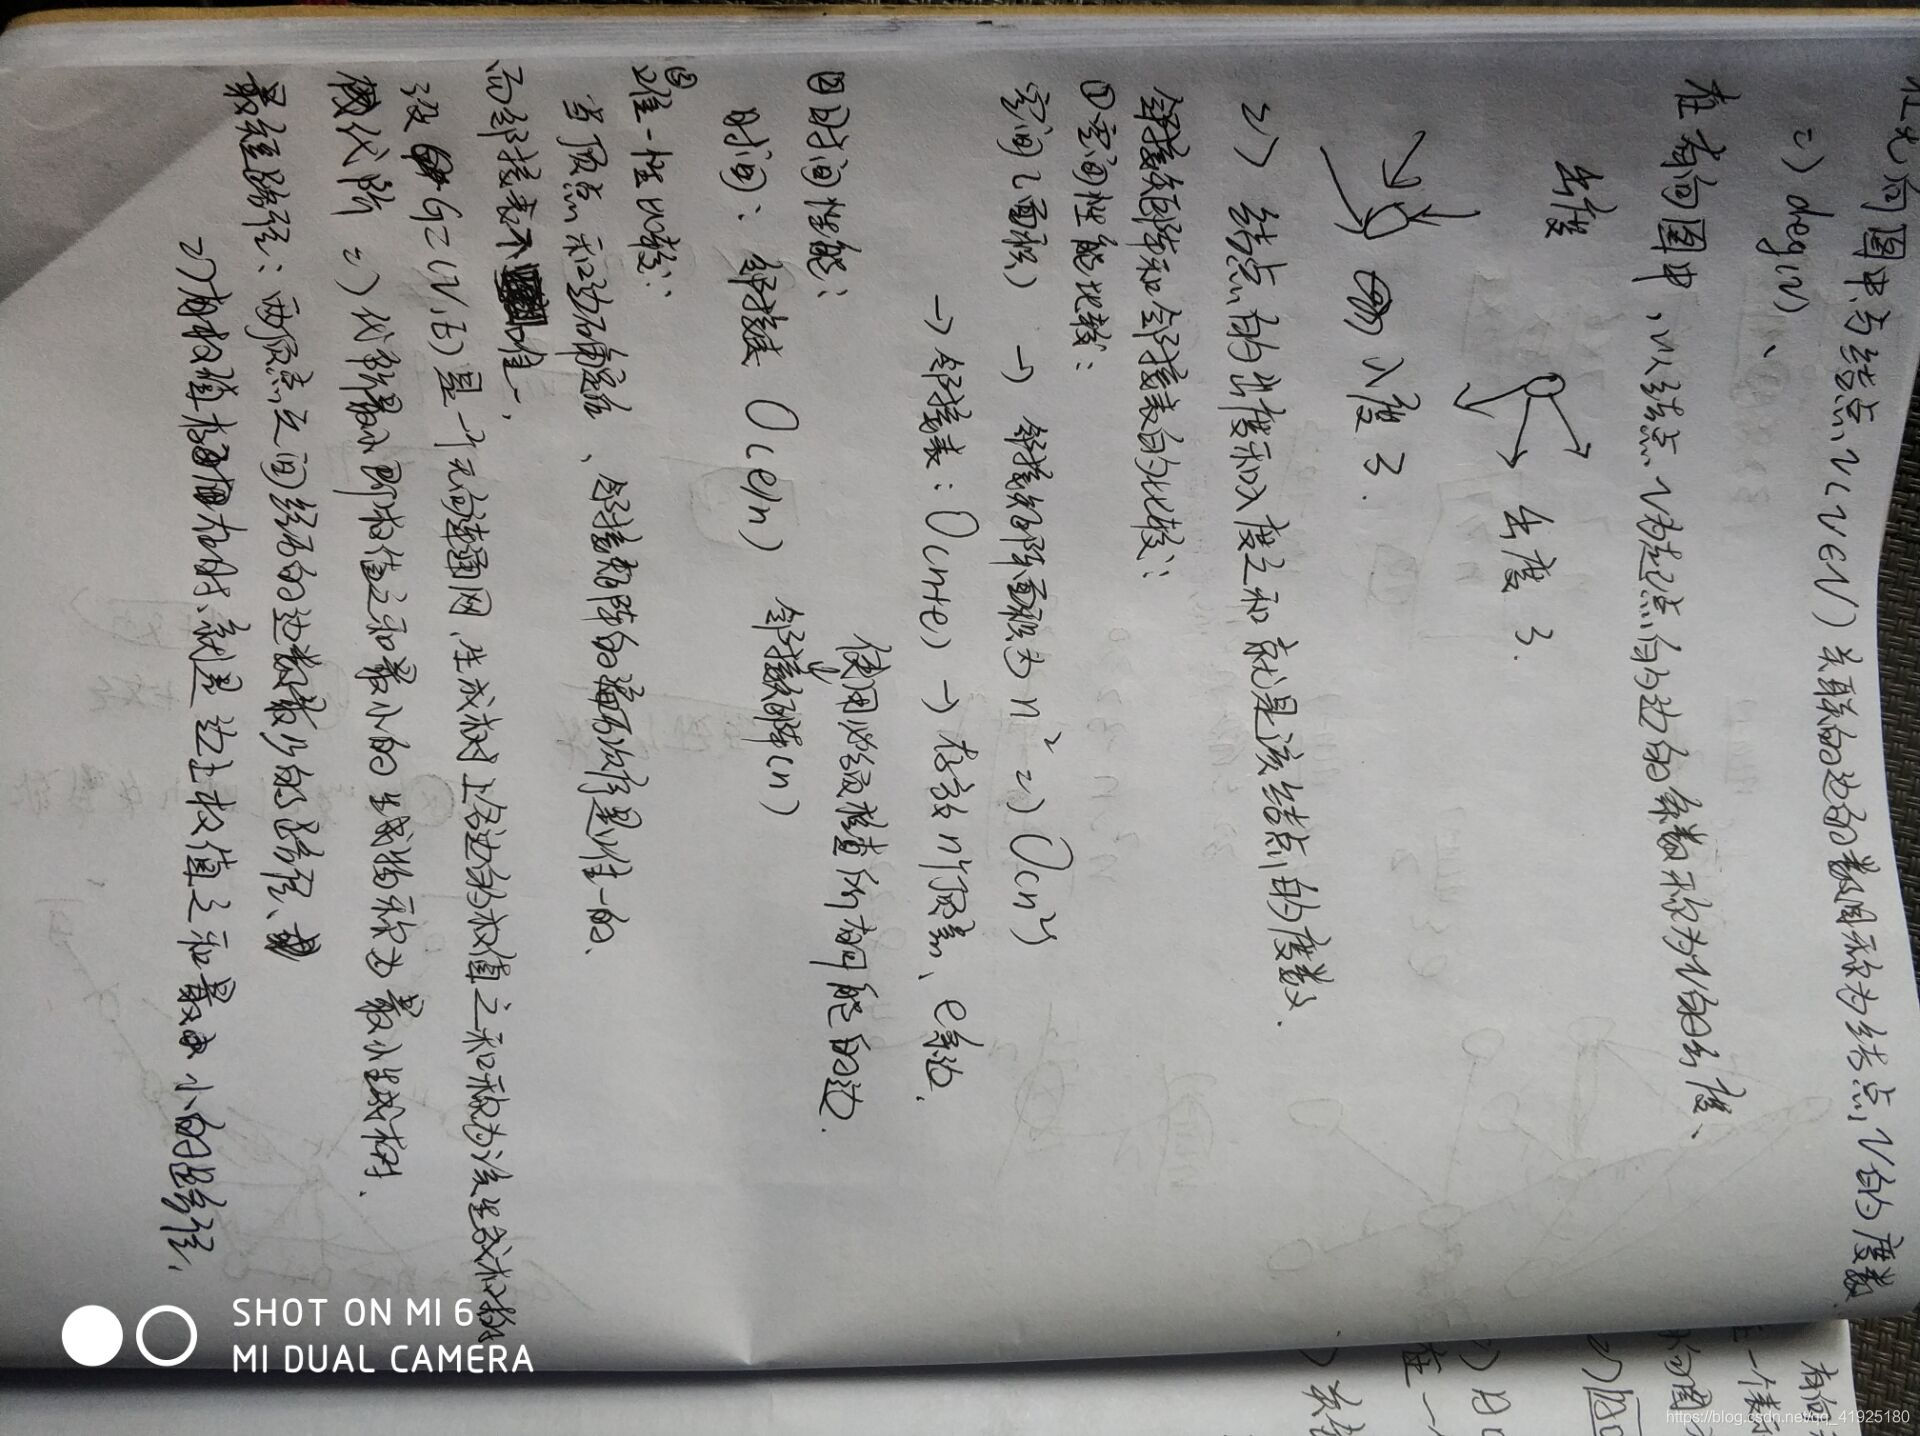 在无向图中,与结点v(v∈V)关联的边的数目称为结点v的度数
=) deg(v)、
在有向图中,以结点v为起点的边的条数称为v的出度、
出度
出度 3.
入度 3.
=) 结点的出度和入度之和就是该结点的度数.
邻接矩阵和邻接表的比较:
①空间性能比较:
空间(面积) → 邻接矩阵面积为 n² =) O(n²)
→ 邻接表:O(n+e) → 存放n个顶点、e条边.
②时间性能:
使用必须检查所有可能的边.
时间:邻接表 O(e/n) 邻接矩阵(n)
③唯一性比较:
当顶点和边确定后、邻接矩阵的表示是唯一的.
而邻接表不唯一、
设G=(V,E)是一个无向连通网,生成树上各边的权值之和称为该生成树的
代价 =) 代价最小即权值之和最小的生成树称为最小生成树.
最短路径:两顶点之间经历的边数最少的路径、
=)有权值存在时,就是边上权值之和最小的路径、
SHOT ON MI 6
MI DUAL CAMERA
https://blog.csdn.net/qq_41925180